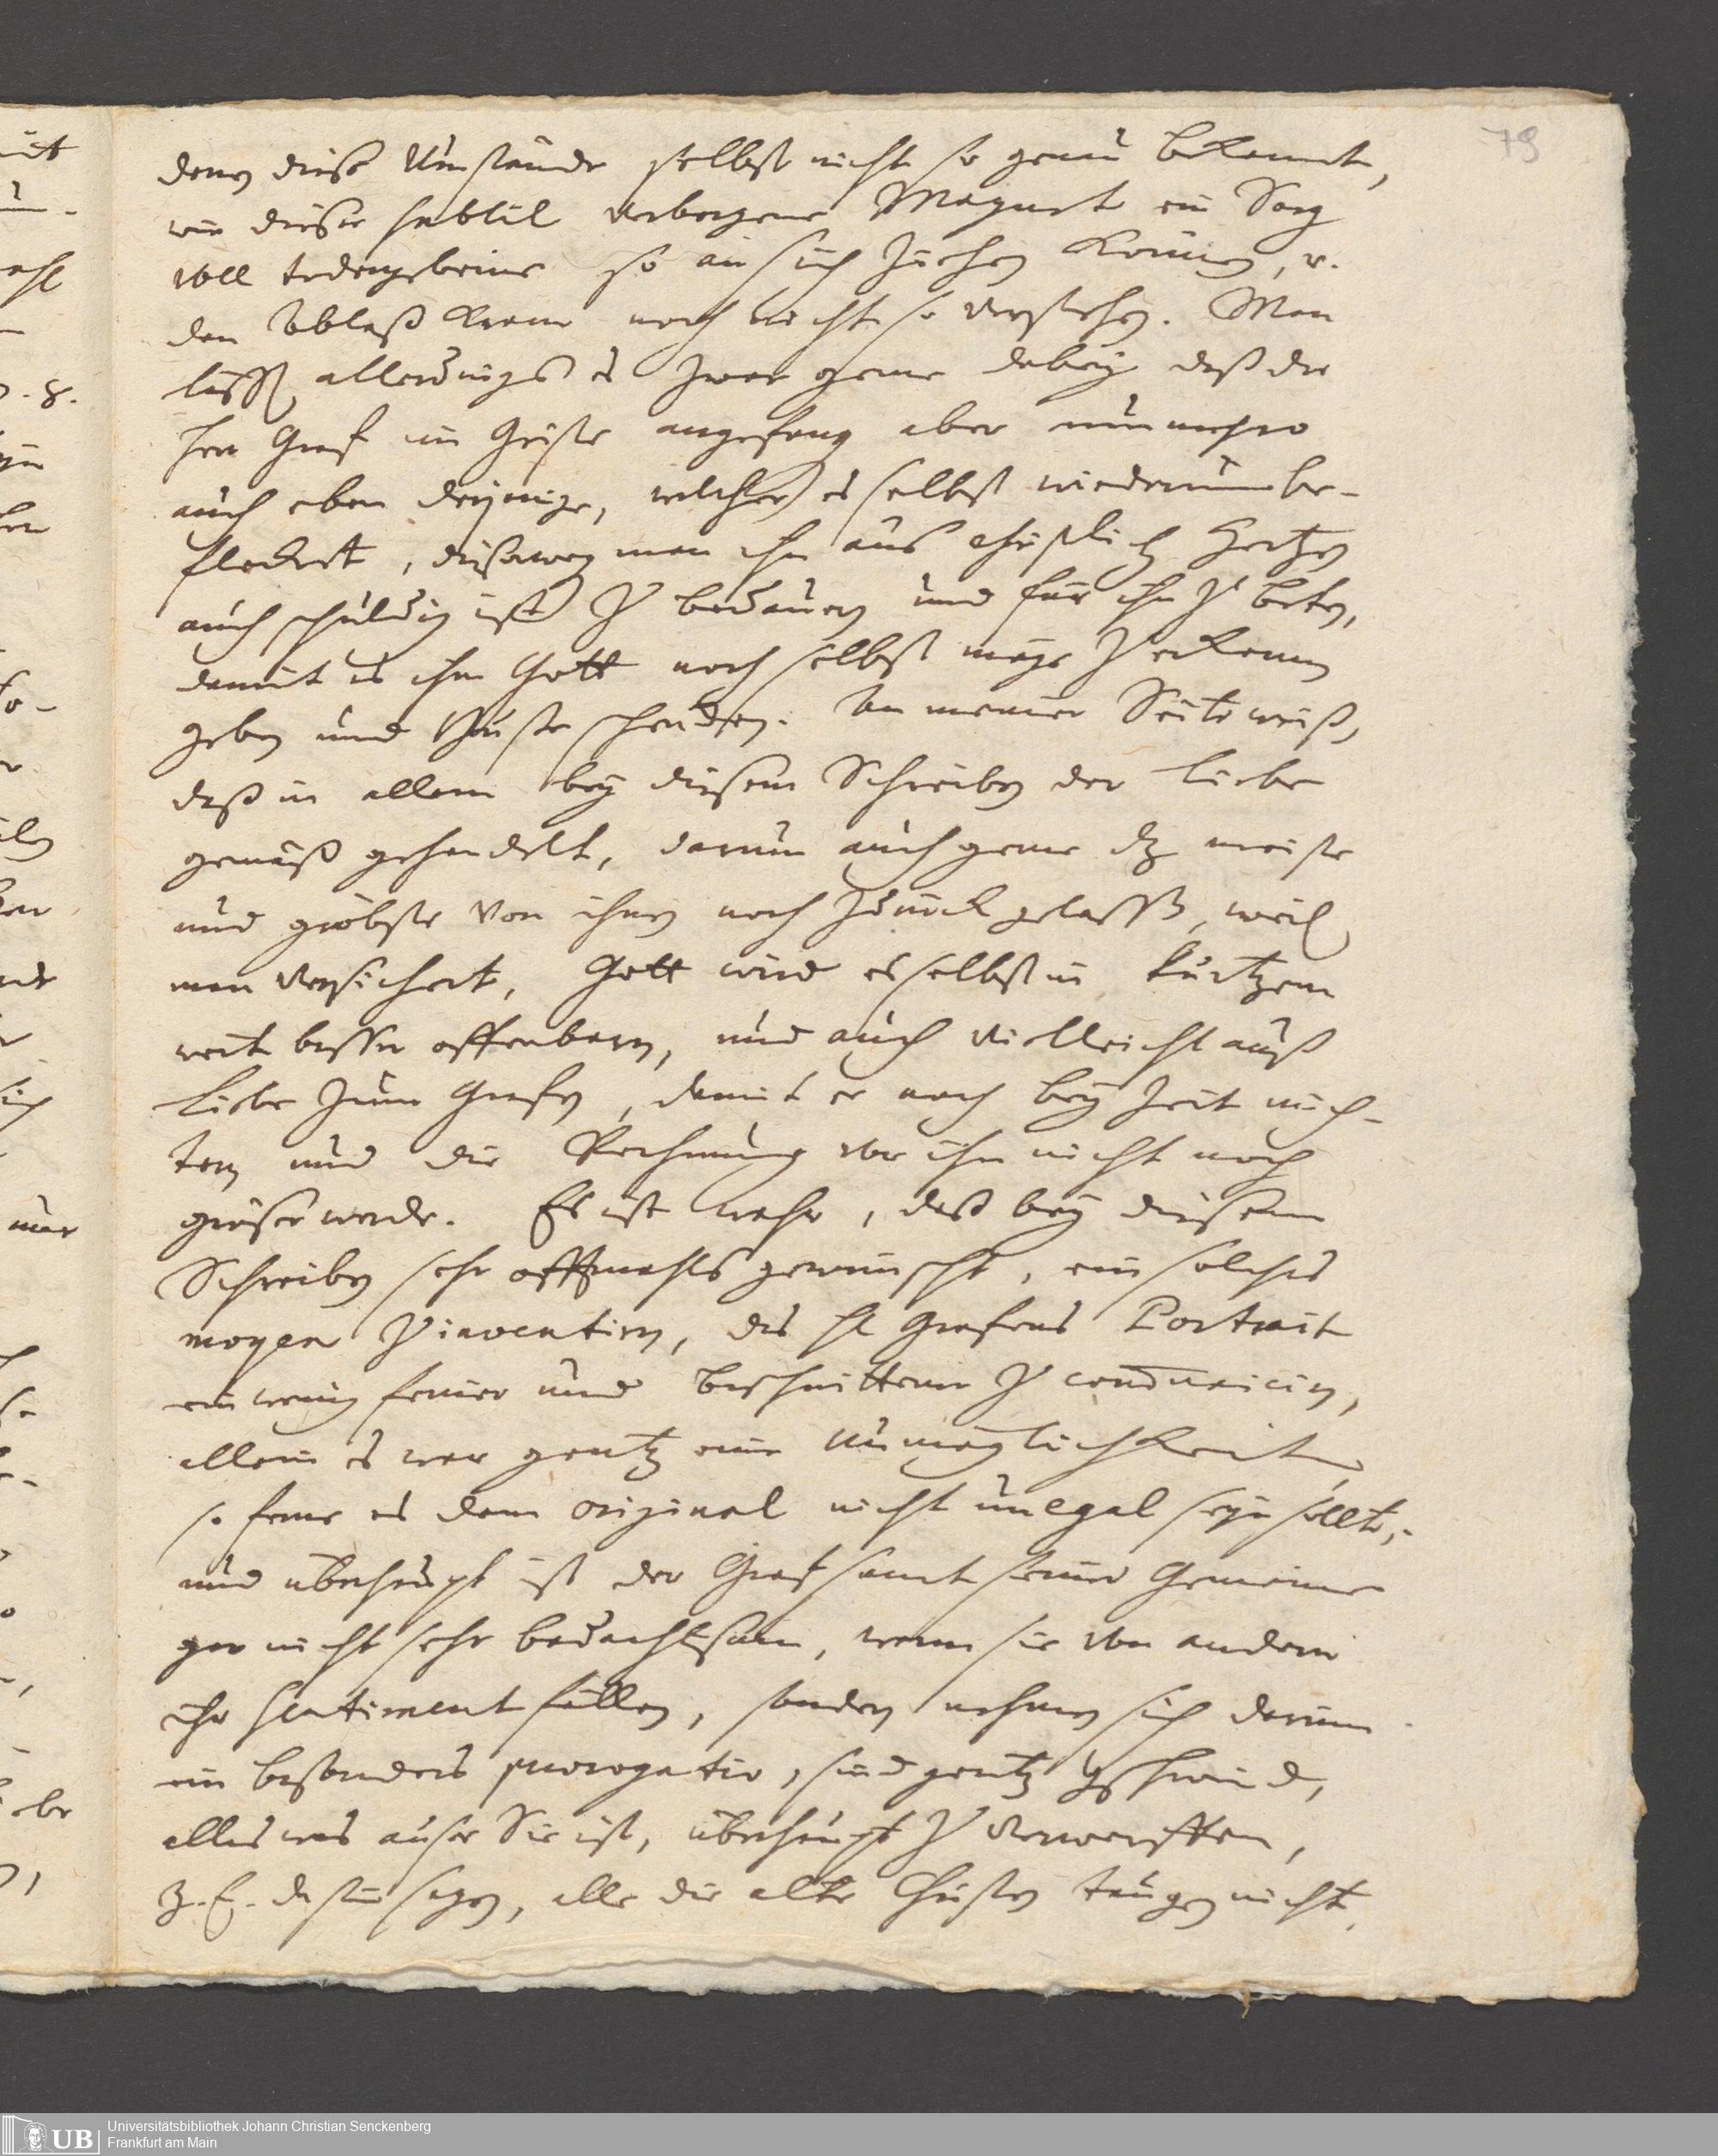 79
denen diese Umstände selbst nicht so genau bekannt,
wie dieser subtil verborgene Magnet ein Sarg
voll todengebeine so an sich ziehen können, u.
den Ablaß Kram noch nicht so verstehen. Man
läßt allerdings es zwar gerne dabey daß die
Herr Graf im Geiste angefang aber nunmehro
auch eben derjenige, welcher es selbst wiederum be-
fleckert, dißweg man ihn aus christlich Hertzen
auch schuldig ist zu bedauren und für ihn zu beten,
damit es ihm Gott noch selbst möge zu erkennen
geben und Buße schencken. An meiner Seite weiß,
daß in allem bey diesem Schreiben der Liebe
gemäß gehandelt, darum auch gerne dz meiste
und gröbste von ihnen noch zurück gelassen, weil
man versichert, Gott wird es selbst in kurtzem
weit besser offenbaren, und auch vielleicht auß
Liebe zum Grafen, damit er noch bey Zeit nüch-
tern und die Rechnung vor ihn nicht noch
größer werde. Es ist wahr, daß bey diesem
Schreiben sehr offtmahls gewünscht, ein solches
moyen zu inventiren, des H. Grafens Portrait
ein wenig feiner und beschnittener zu
allein es war gantz eine Unmöglichkeit,
so ferne es dem original nicht unegal seyn sollte,
und überhaupt ist der Graf samt seiner Gemeine
gar nicht sehr bedachtsam, wenn sie von andern
ihr sentiment fällen, sondern nehmen sich darinn
ein besonders prærogativ, sind gantz geschwind,
alles was außer Sie ist, überhaupt zu verwerffen,
z. E. da sie sagen, alle die alte Christen taugen nicht,
Universitätsbibliothek Johann Christian Senckenberg
Frankfurt am Main
UB